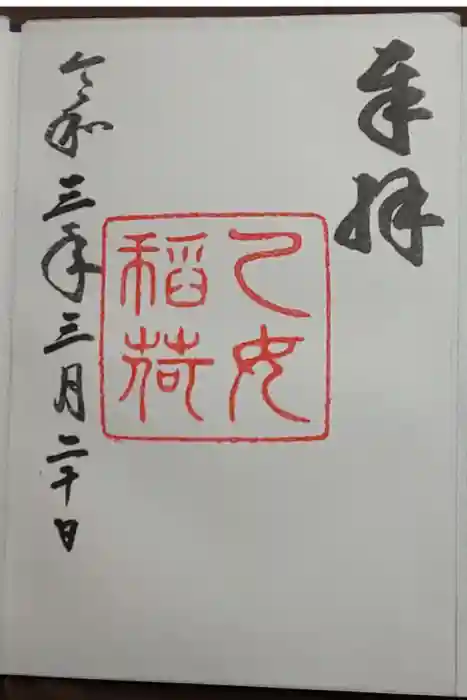 奉拝
乙女
稲荷
令和三年三月二十日